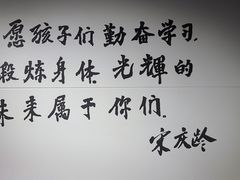 愿孩子们勤奋学习,
段炼身体.光輝的
未来属于你们.
宋庆龄